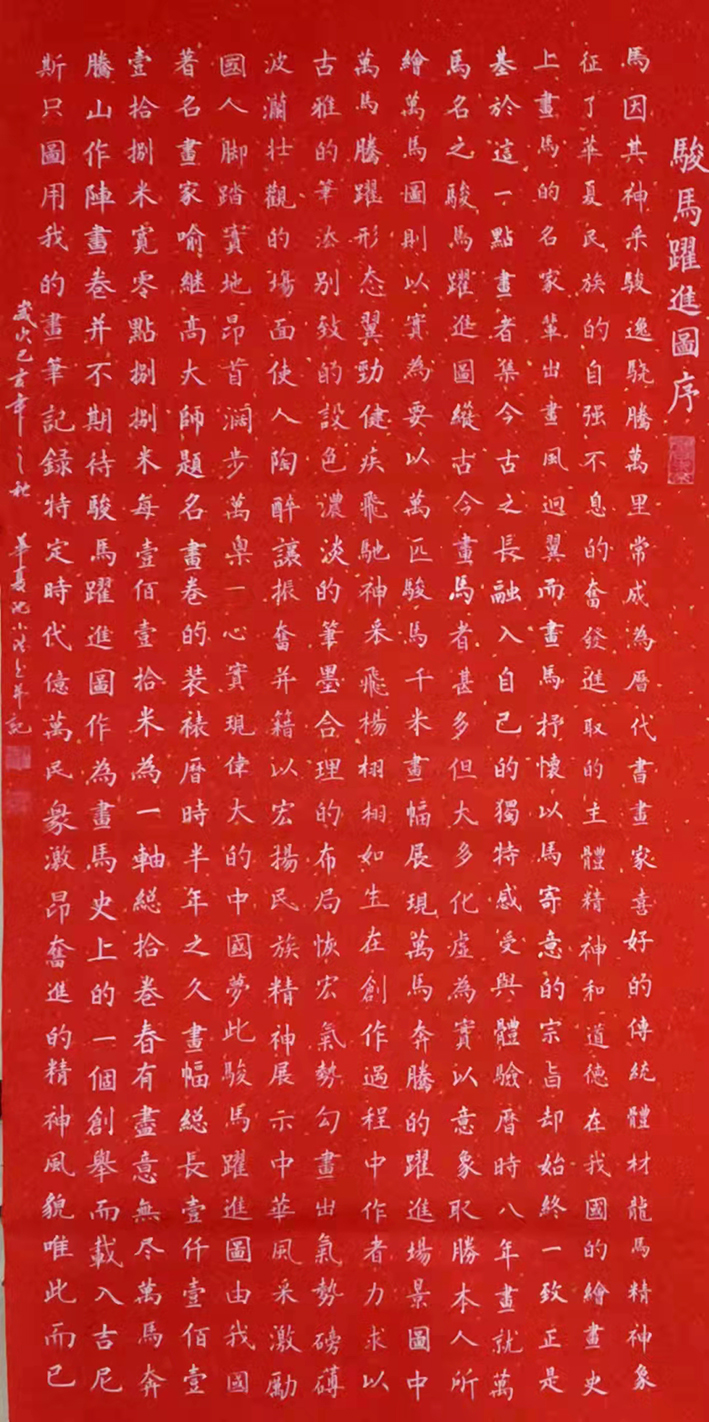 駿馬躍進圖序
馬因其神采駿逸驍騰萬里常成為曆代書畫家喜好的傳統體材龍馬精神象
征了華夏民族的自强不息的奮發進取的主體精神和道德在我國的繪畫史
上畫馬的名家輩出畫風迥翼而畫馬抒懷以馬寄意的宗旨却始終一致正是
基於這一點畫者集今古之長融入自己的獨特感受與體驗曆時八年畫就萬
馬名之駿馬躍進圖縱古今畫馬者甚多但大多化虛為實以意象取勝本人所
繪萬馬圖則以實為要以萬匹駿馬千米畫幅展現萬馬奔騰的躍進場景圖中
萬馬騰躍形态翼勁健疾飛馳神采飛楊栩栩如生在創作過程中作者力求以
古雅的筆法别致的設色濃淡的筆墨合理的布局恢宏氣勢勾畫出氣勢磅礴
波瀾壮觀的場面使人陶醉讓振奮并籍以宏揚民族精神展示中華風采激勵
國人脚踏實地昂首濶步萬衆一心實現偉大的中國夢此駿馬躍進圖由我國
著名畫家喻継高大師題名畫卷的装裱曆時半年之久畫幅総長壹仟壹佰壹
壹拾捌米寬零點捌捌米每壹佰壹拾米為一軸総拾卷春有盡意無尽萬馬奔
騰山作陣畫卷并不期待駿馬躍進圖作為畫馬史上的一個創舉而載入吉尼
斯只圖用我的畫筆記録特定時代億萬民衆激昂奮進的精神風貌唯此而已
歲次己亥年之秋 華夏 小 并記